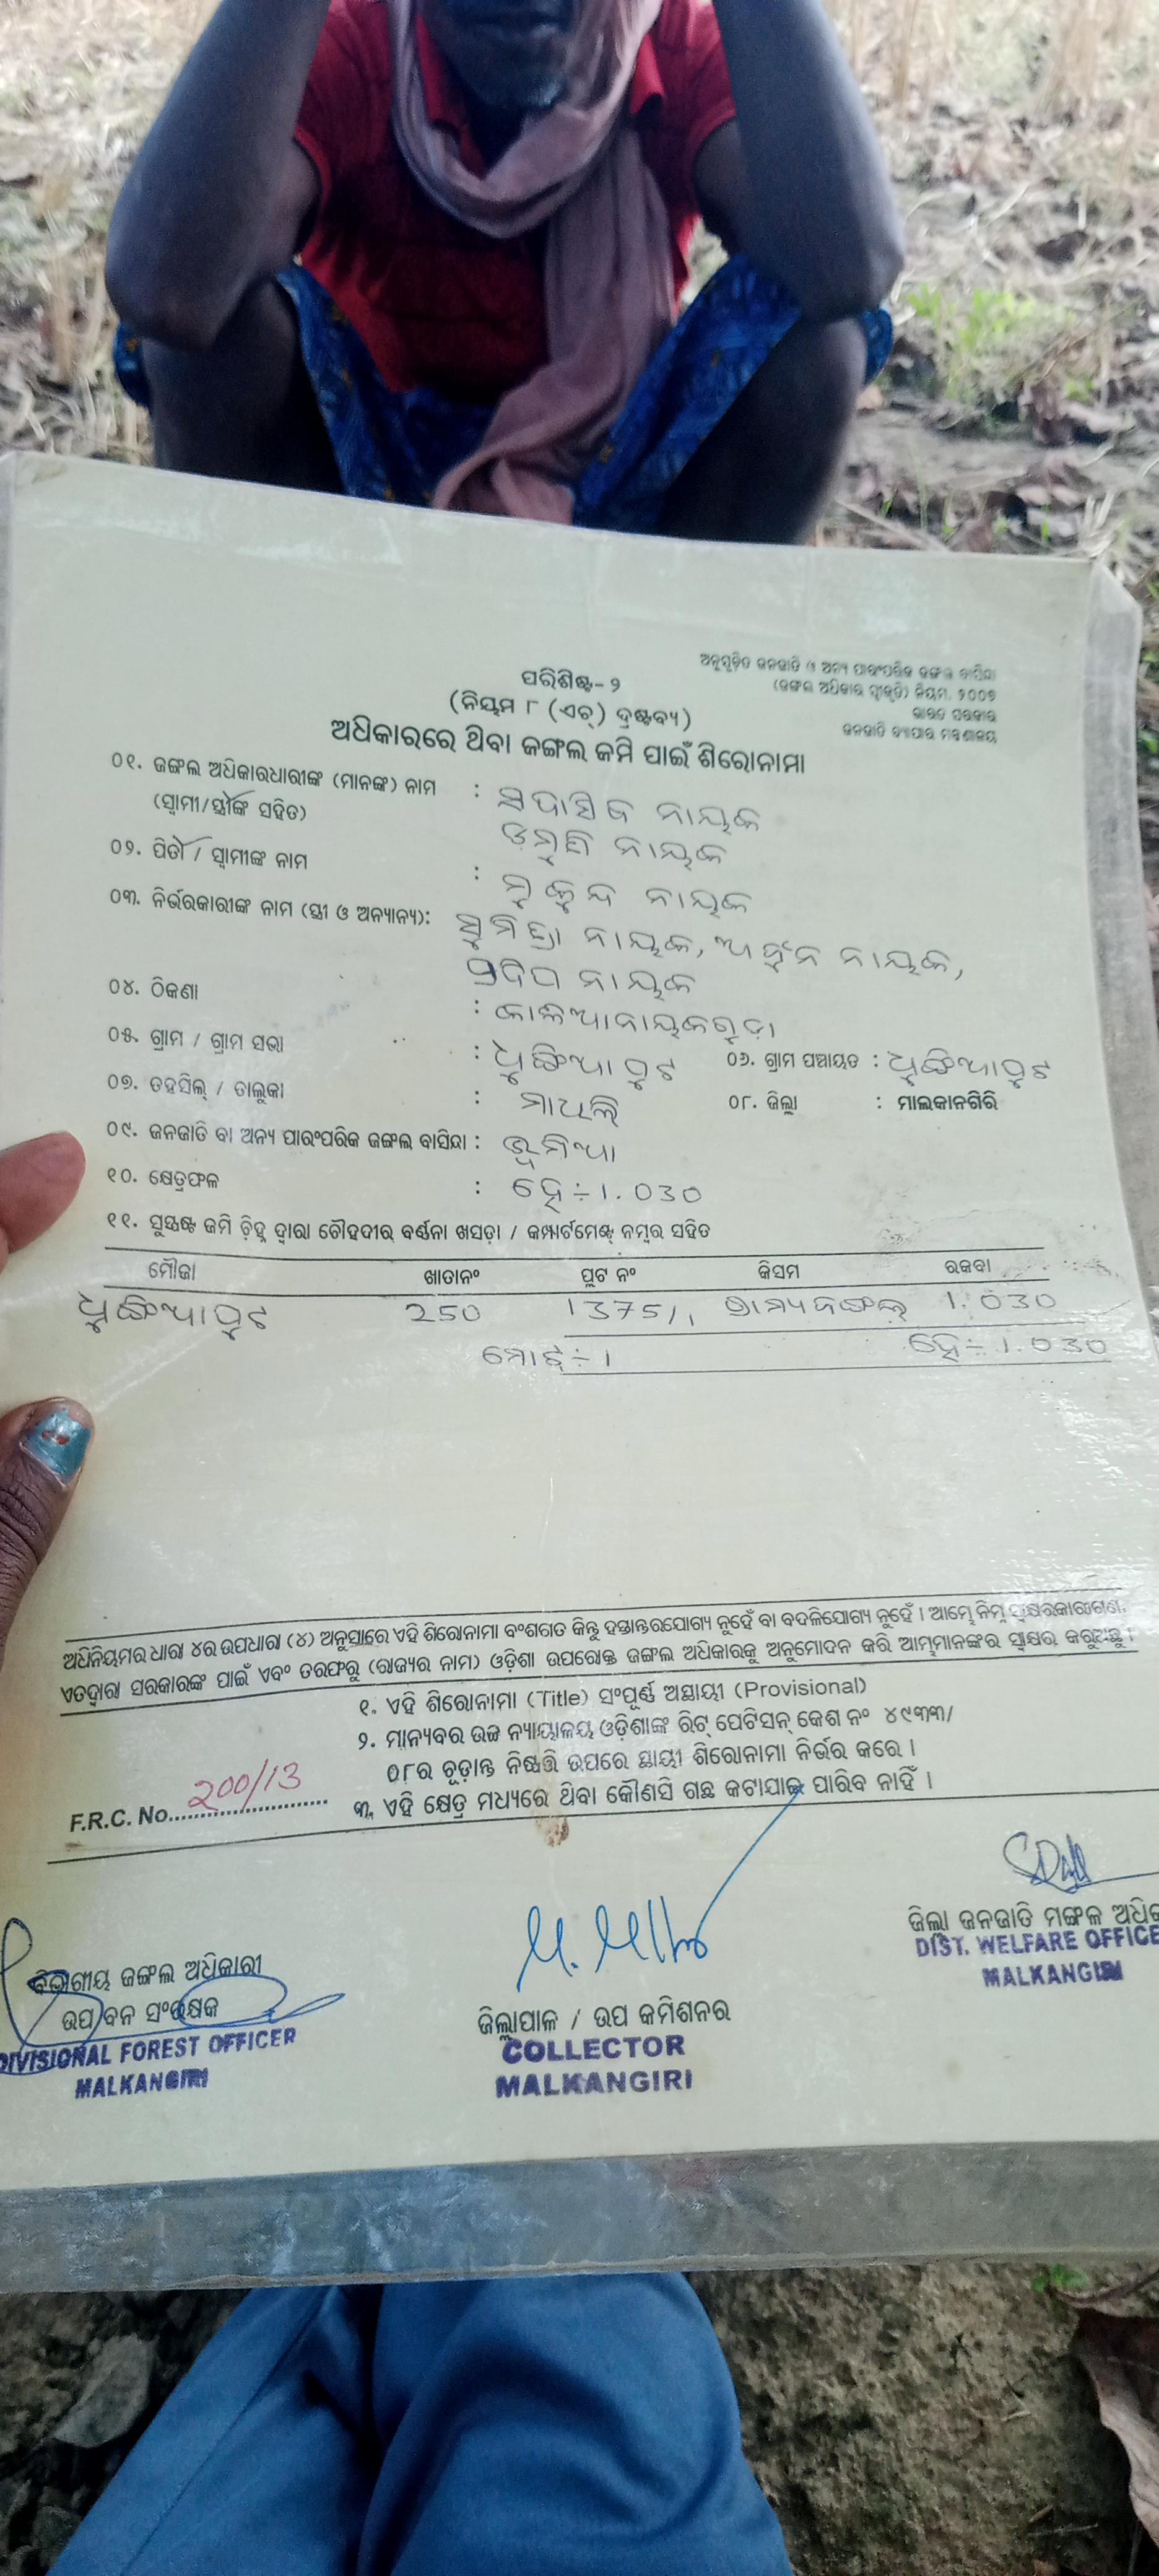 ଅନୁସୂଚିତ ଜନଜାତି ଓ ଅନ୍ୟ ପାରଂପରିକ ଜଙ୍ଗଲ ବାସିନ୍ଦା
(ଜଙ୍ଗଲ ଅଧିକାର ସ୍ୱୀକୃତି) ନିୟମ, ୨୦୦୭
ଭାରତ ସରକାର
ଜନଜାତି ବ୍ୟାପାର ମନ୍ତ୍ରଣାଳୟ
ପରିଶିଷ୍ଟ-୨
(ନିୟମ ୮ (ଏଚ୍) ଦ୍ରଷ୍ଟବ୍ୟ)
ଅଧିକାରରେ ଥିବା ଜଙ୍ଗଲ ଜମି ପାଇଁ ଶିରୋନାମା
୦୧. ଜଙ୍ଗଲ ଅଧିକାରଧାରୀଙ୍କ (ମାନଙ୍କ) ନାମ : ସଦାସିବ ନାୟକ
(ସ୍ୱାମୀ/ସ୍ତ୍ରୀଙ୍କ ସହିତ) ନାୟକ
୦୨. ପିତା / ସ୍ୱାମୀଙ୍କ ନାମ : ମୁକୁନ୍ଦ ନାୟକ
୦୩. ନିର୍ଭରକାରୀଙ୍କ ନାମ (ସ୍ତ୍ରୀ ଓ ଅନ୍ୟାନ୍ୟ): ସୁମିତ୍ରା ନାୟକ, ଅର୍ଜୁନ ନାୟକ,
ପ୍ରଦିପ ନାୟକ
୦୪. ଠିକଣା : କାଳିଆନାୟକଗୁଡ଼ା
୦୫. ଗ୍ରାମ / ଗ୍ରାମ ସଭା : ଧୁଙ୍ଗିଆପୁଟ ୦୬. ଗ୍ରାମ ପଞ୍ଚାୟତ : ଧୁଙ୍ଗିଆପୁଟ
୦୭. ତହସିଲ୍ / ତାଲୁକା : ମାଥିଲି ୦୮. ଜିଲ୍ଲା : ମାଲକାନଗିରି
୦୯. ଜନଜାତି ବା ଅନ୍ୟ ପାରଂପରିକ ଜଙ୍ଗଲ ବାସିନ୍ଦା : ଭୂମିଆ
୧୦. କ୍ଷେତ୍ରଫଳ : ହେ÷1.030
୧୧. ସୁସ୍ପଷ୍ଟ ଜମି ଚିହ୍ନ ଦ୍ୱାରା ଚୌହଦୀର ବର୍ଣ୍ଣନା ଖସଡ଼ା / କମ୍ପାର୍ଟମେଣ୍ଟ୍ ନମ୍ବର ସହିତ
ମୌଜା ଖାତାନଂ ପ୍ଲଟ ନଂ କିସମ ରକବା
ଧୁଙ୍ଗିଆପୁଟ 250 1375/1 ଗ୍ରାମ୍ୟଜଙ୍ଗଲ୍ 1.030
ମୋଟ୍÷1 ହେ÷1.030
ଅଧିନିୟମର ଧାରା ୪ର ଉପଧାରା (୪) ଅନୁସାରେ ଏହି ଶିରୋନାମା ବଂଶଗତ କିନ୍ତୁ ହସ୍ତାନ୍ତରଯୋଗ୍ୟ ନୁହେଁ ବା ବଦଳିଯୋଗ୍ୟ ନୁହେଁ । ଆମ୍ଭେ ନିମ୍ନ ସ୍ୱାକ୍ଷରକାରୀଗଣ,
ଏତଦ୍ୱାରା ସରକାରଙ୍କ ପାଇଁ ଏବଂ ତରଫରୁ (ରାଜ୍ୟର ନାମ) ଓଡ଼ିଶା ଉପରୋକ୍ତ ଜଙ୍ଗଲ ଅଧିକାରକୁ ଅନୁମୋଦନ କରି ଆମ୍ଭମାନଙ୍କର ସ୍ୱାକ୍ଷର କରୁଅଛୁ ।
୧. ଏହି ଶିରୋନାମା (Title) ସଂପୂର୍ଣ୍ଣ ଅସ୍ଥାୟୀ (Provisional)
୨. ମାନ୍ୟବର ଉଚ୍ଚ ନ୍ୟାୟାଳୟ ଓଡ଼ିଶାଙ୍କ ରିଟ୍ ପେଟିସନ୍ କେଶ ନଂ ୪୯୩୩/
୦୮ର ଚୂଡ଼ାନ୍ତ ନିଷ୍ପତ୍ତି ଉପରେ ସ୍ଥାୟୀ ଶିରୋନାମା ନିର୍ଭର କରେ ।
୩. ଏହି କ୍ଷେତ୍ର ମଧ୍ୟରେ ଥିବା କୌଣସି ଗଛ କଟାଯାଇ ପାରିବ ନାହିଁ ।
F.R.C. No. 200/13
ବିଭାଗୀୟ ଜଙ୍ଗଲ ଅଧିକାରୀ
ଉପ ବନ ସଂରକ୍ଷକ
DIVISIONAL FOREST OFFICER
MALKANGIRI
ଜିଲ୍ଲାପାଳ / ଉପ କମିଶନର
COLLECTOR
MALKANGIRI
ଜିଲ୍ଲା ଜନଜାତି ମଙ୍ଗଳ
DIST. WELFARE OFFICE
MALKANGIRI